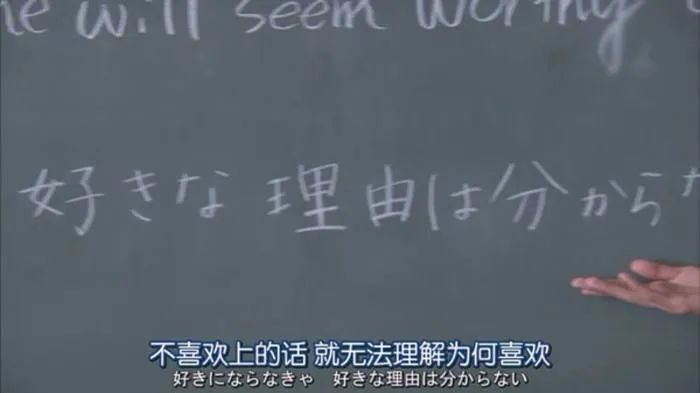 he will seem worthy
好きな 理由は分から
不喜欢上的话 就无法理解为何喜欢
好きにならなきゃ 好きな理由は分からない